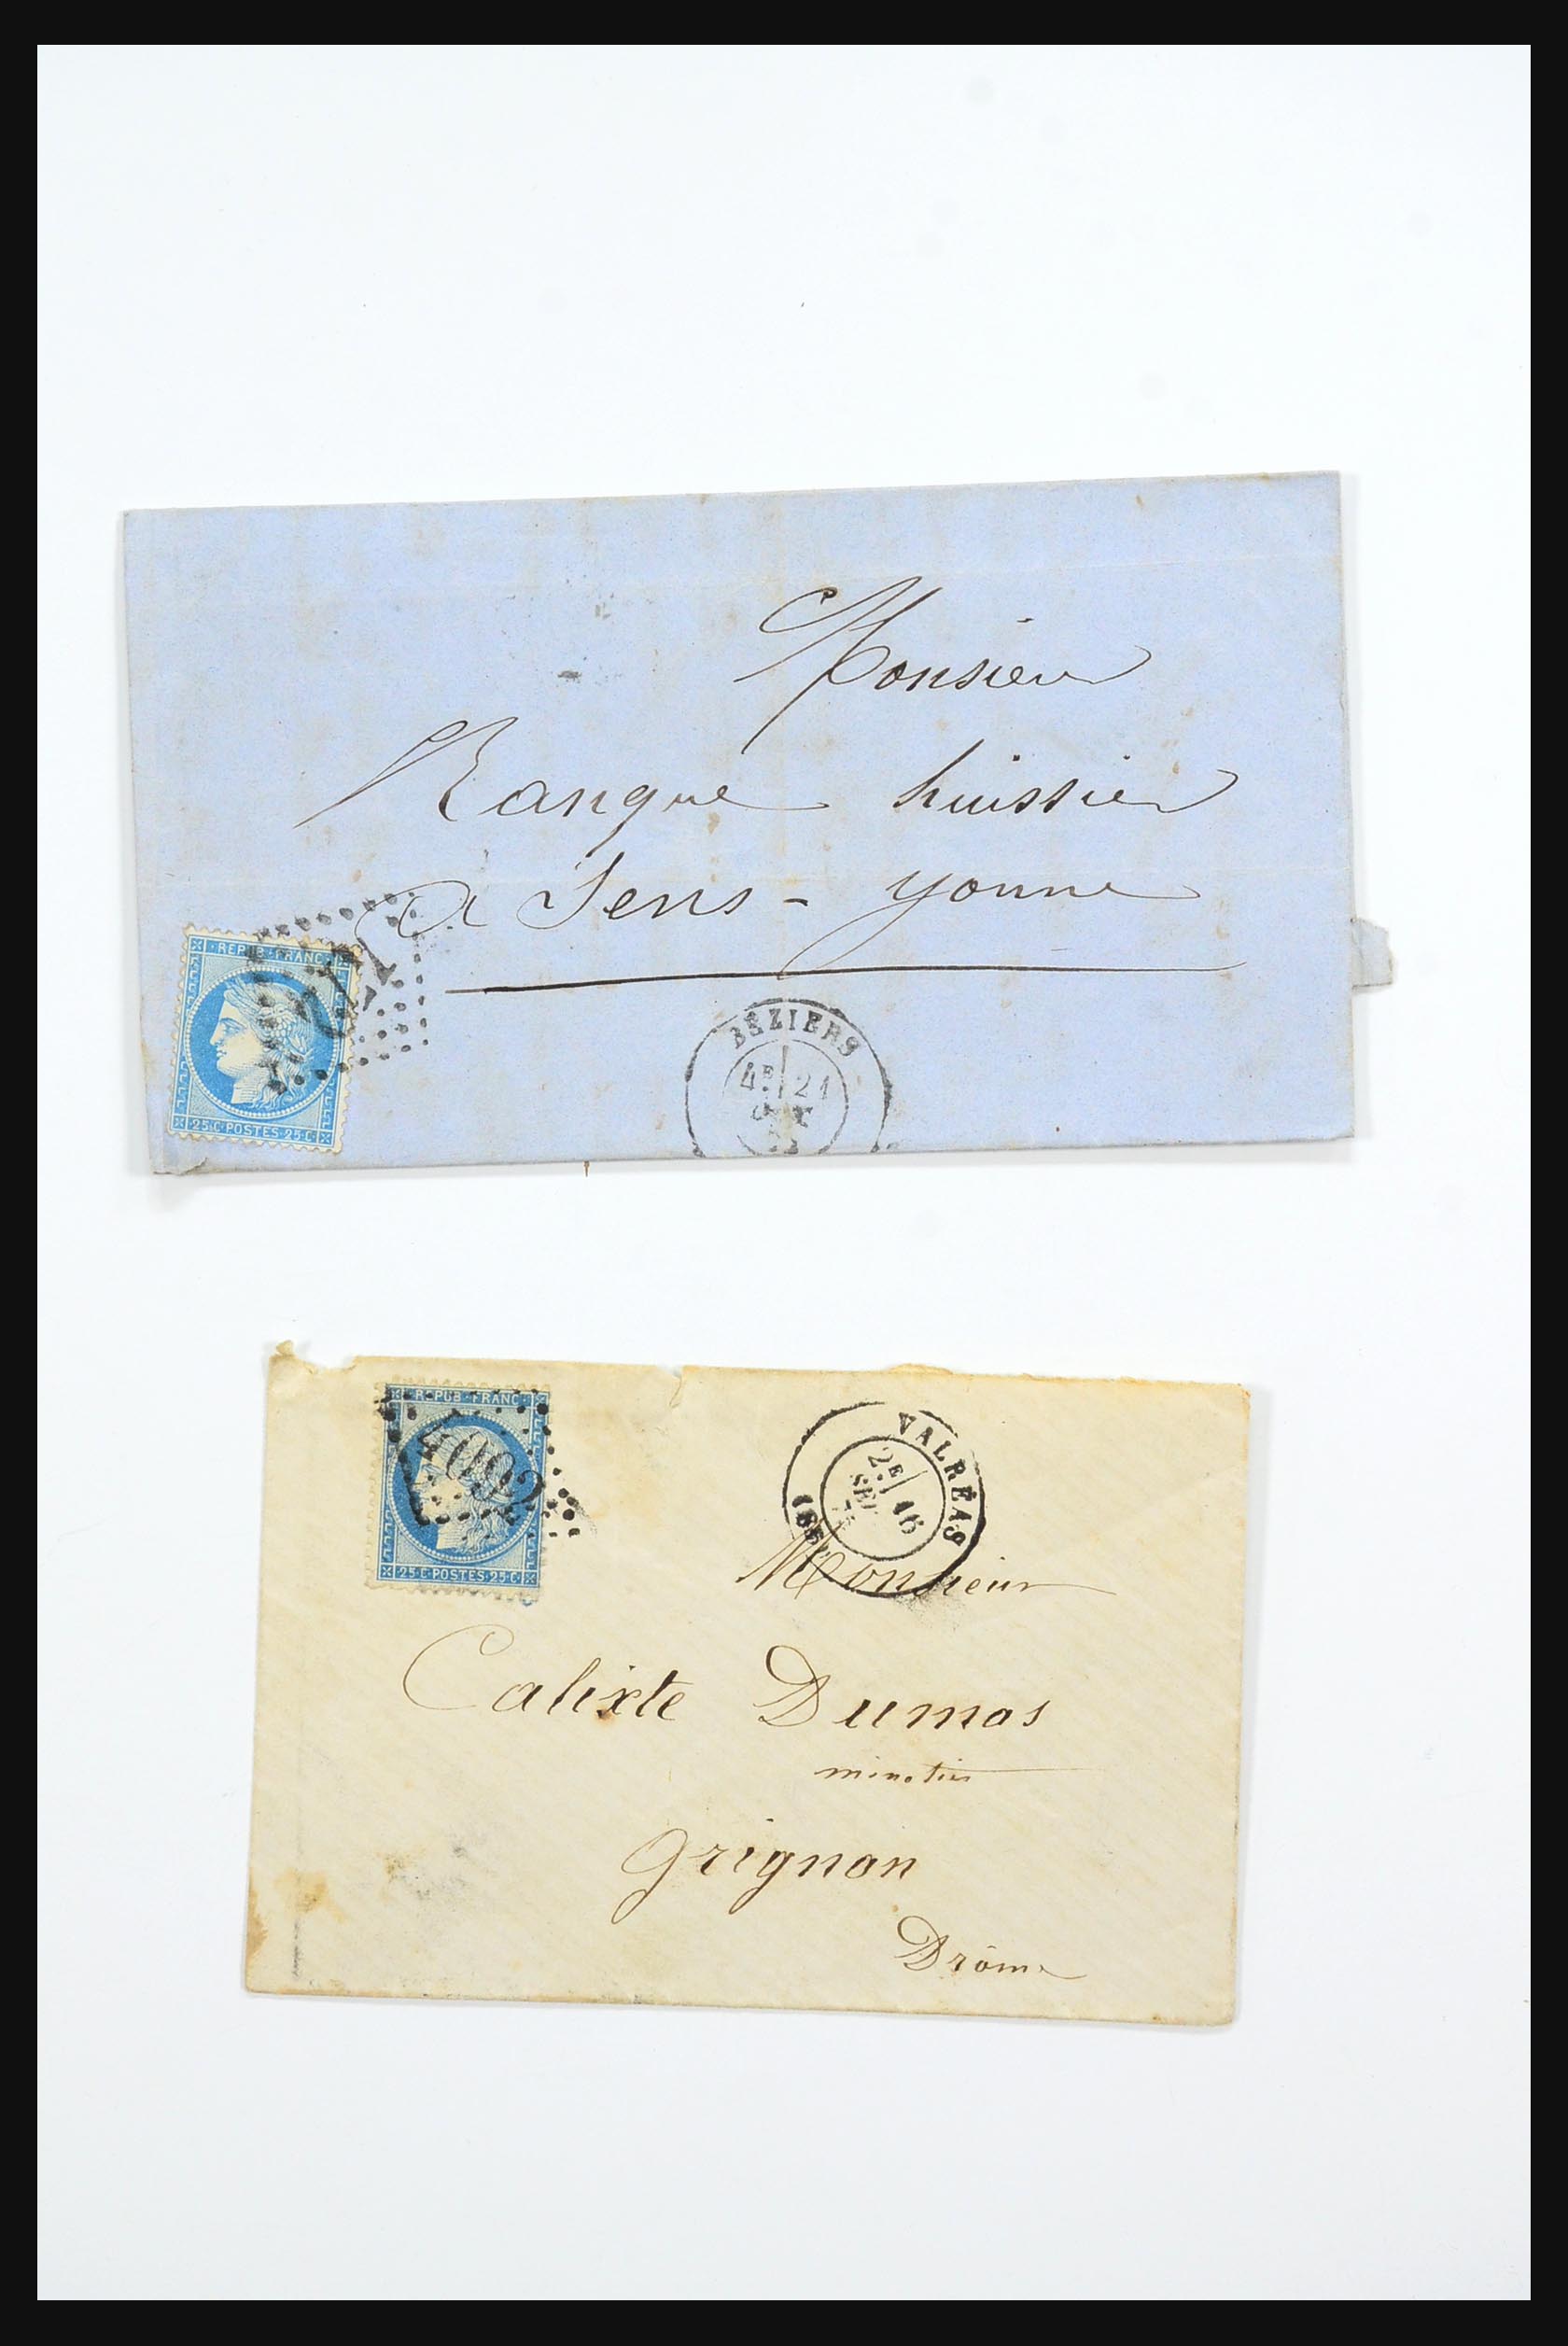 Monsieur
Ranque huissier
a Sens - yonne
REPUB FRANC
25 C POSTES 25 C
BÉZIERS
4E 21
REPUB FRANC
25 C POSTES 25 C
4092
VALRÉAS
2E 16
SEPT
Monsieur
Calixte Dumas
minotier
Grignan
Drôme